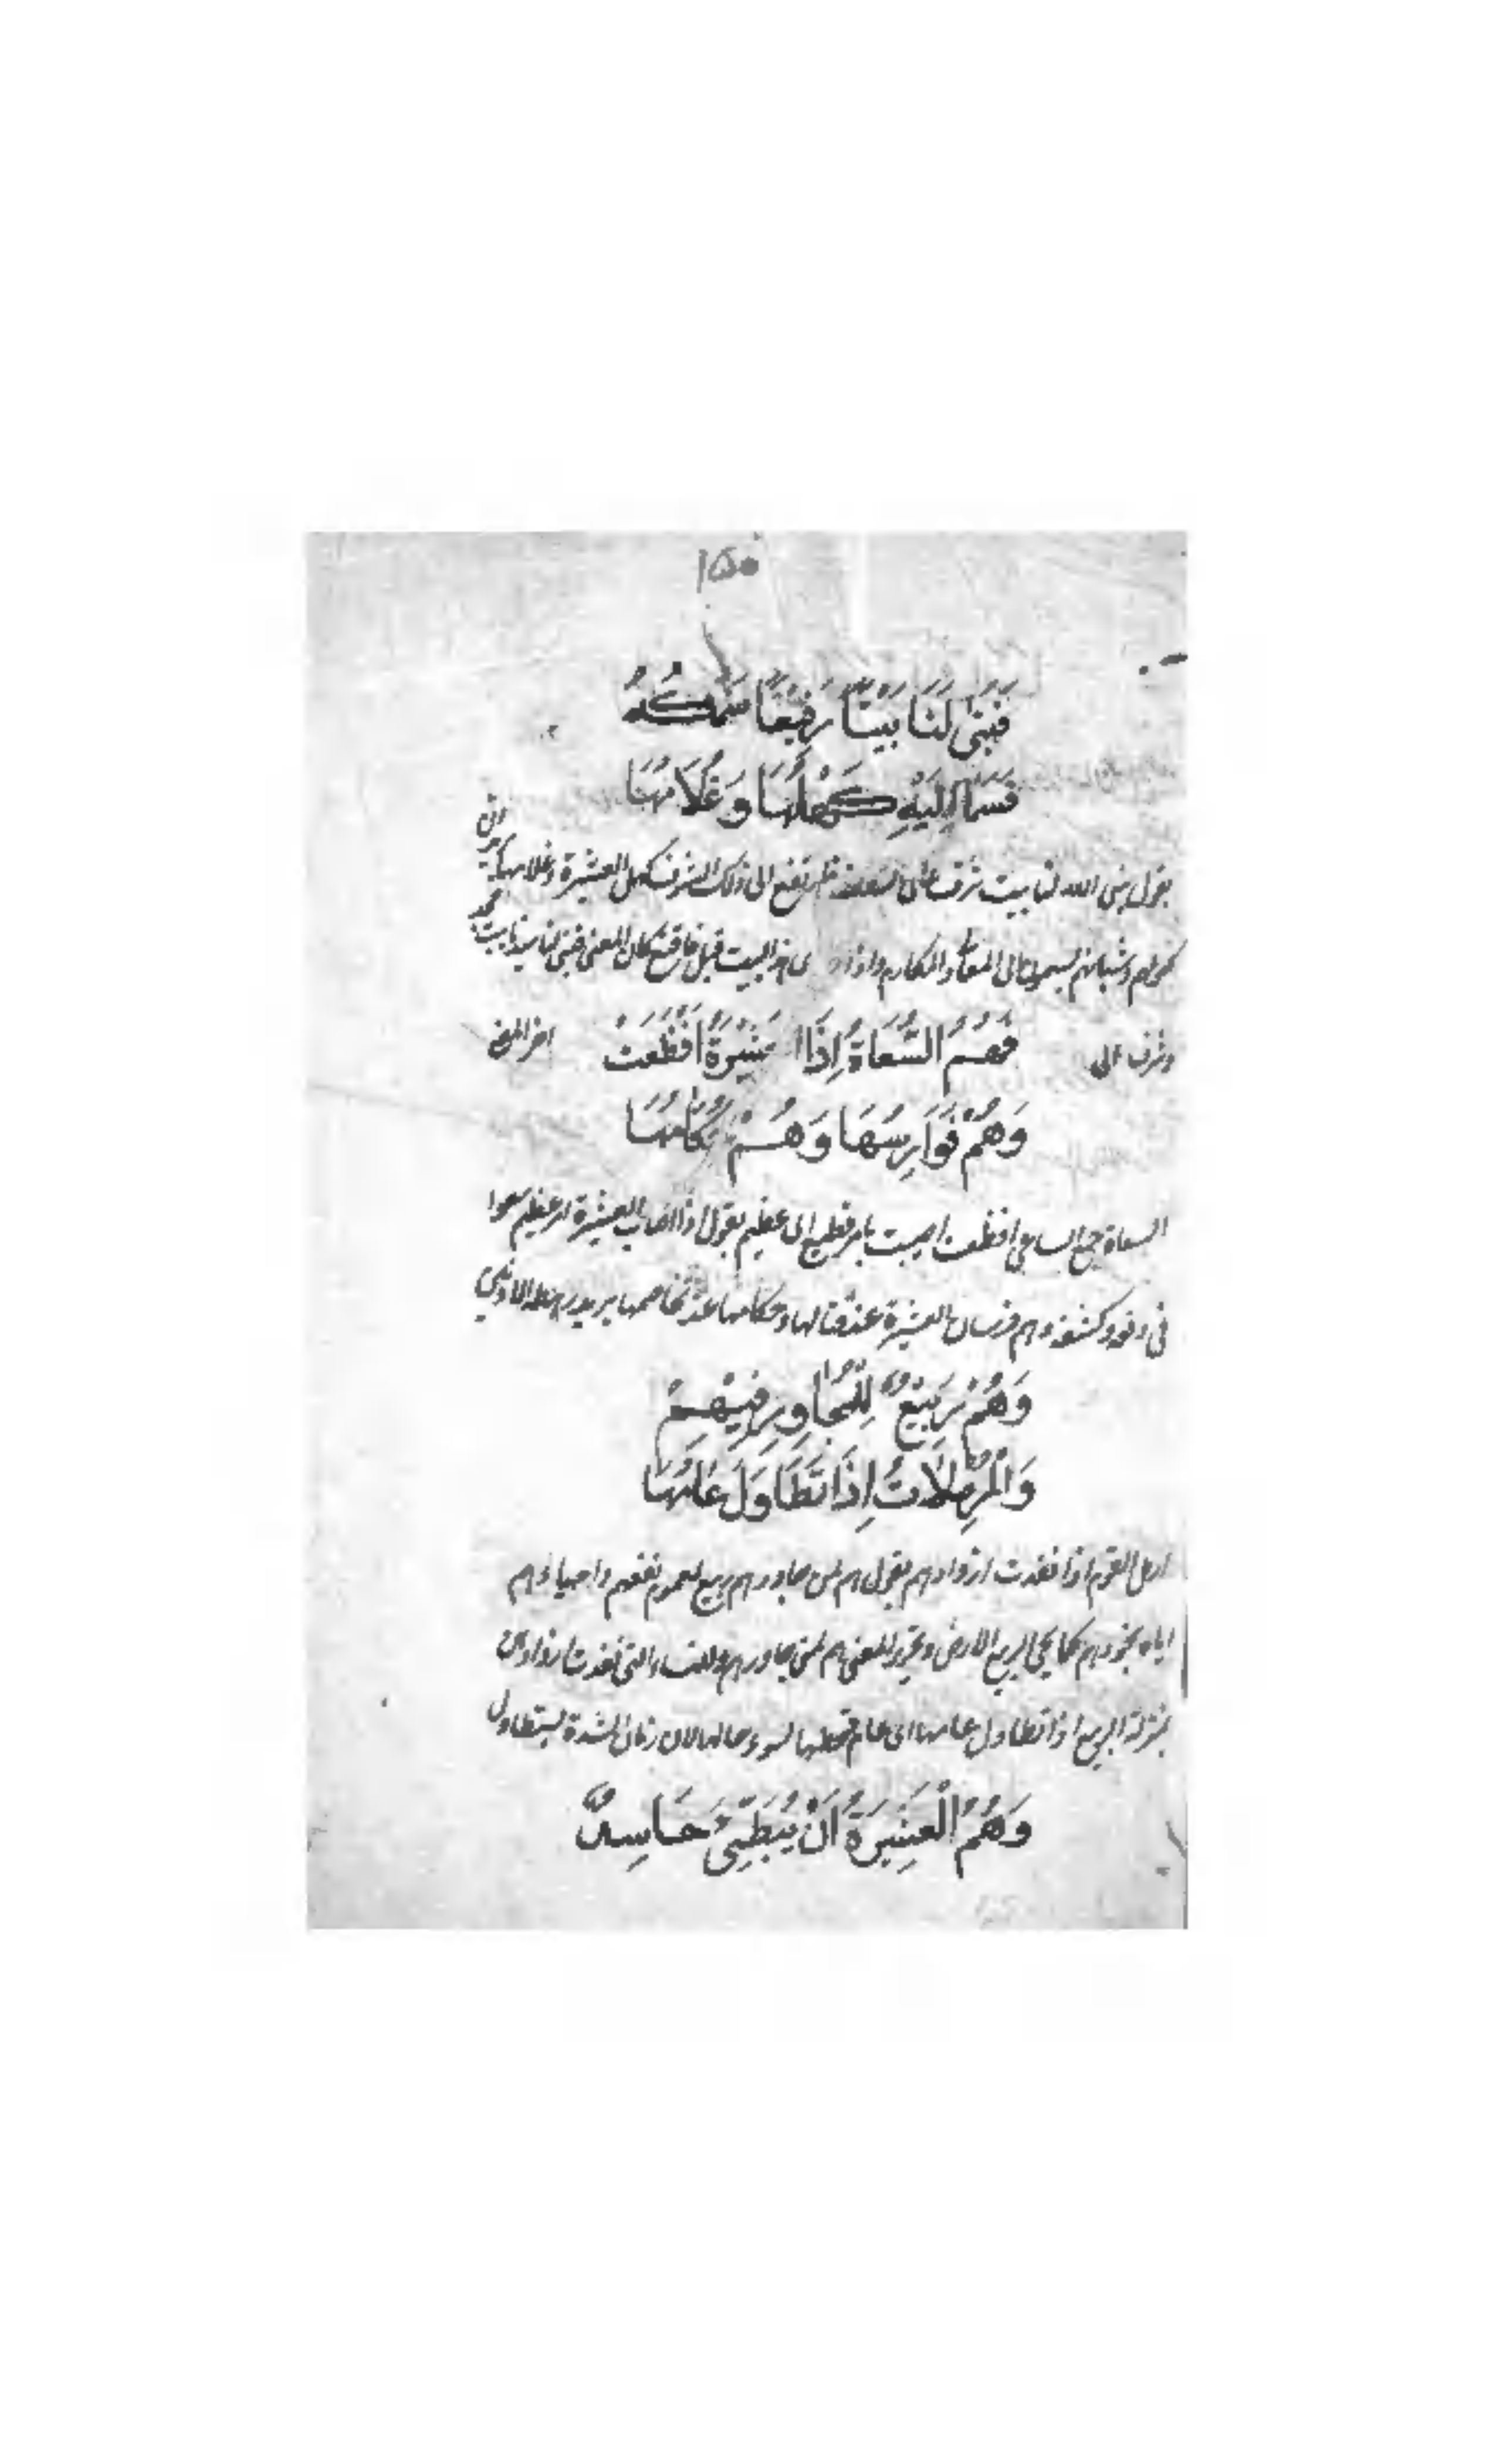 ١٥٠
فَبَنَىٰ لَنَا بَيْتًا رَفِيْعًا سَمْكُهُ
فَسَمَا اِلَيْهِ كَهْلُهَا وَغُلَامُهَا
يقول بنى الله لنا بيت شرف عالى السقف فارتفع الى ذلك الشرف كهل العشيرة وغلامها يريد ان
كهولهم وشبانهم يسمون الى المعالى والمكارم واذا هذا البيت قبل فاقنع كان المعنى فبنى لنا سيدنا بيت مجد
وشرف الى اخر المعنى
فَهُمُ السُّعَاةُ اِذَا الْعَشِيْرَةُ اُفْظِعَتْ
وَهُمْ فَوَارِسُهَا وَهُمْ حُكَّامُهَا
السعاة جمع الساعى افظعت اصيبت بامر فظيع اى عظيم يقول اذا اصاب العشيرة امر عظيم سعوا
فى دفعه وكشفه وهم فرسان العشيرة عند قتالها وحكامها عند تخاصمها يريد رهطه الادنين
وَهُمْ رَبِيْعٌ لِلْمُجَاوِرِ فِيْهِمْ
وَالْمُرْمِلَاتُ اِذَا تَطَاوَلَ عَامُهَا
ارمل القوم اذا نفدت ازوادهم يقول هم لمن جاورهم ربيع لعموم نفعهم واحيائهم
اياه بجودهم كما يحيى الربيع الارض وتحرير المعنى هم لمن جاورهم وللنساء التى نفدت ازوادهن
بمنزلة الربيع اذا تطاول عامها اى عام قحطها لسوء حالها لان زمان الشدة يستطاول
وَهُمُ الْعَشِيْرَةُ اَنْ يُبَطِّئَ حَاسِدٌ